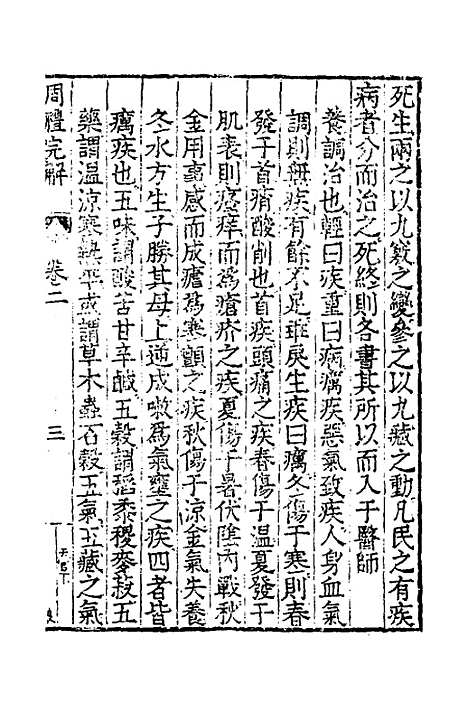 死生兩之以九竅之變參之以九藏之動凡民之有疾
病者分而治之死終則各書其所以而入于醫師
養謂治也輕曰疾重曰病癘疾惡氣致疾人身血氣
調則無疾有餘不足班戾生疾曰癘冬傷于寒則春
發于首痟酸削也首疾頭痛之疾春傷于温夏發于
肌表則癢痒而為瘡疥之疾夏傷于暑伏隂内戰秋
金用事感而成瘧為寒顫之疾秋傷于凉金氣失養
冬水方生子勝其母上逆成嗽為氣壅之疾四者皆
癘疾也五味謂酸苦甘辛鹹五穀謂稻黍稷麥菽五
藥謂温凉寒熱平或謂草木蟲石穀五氣五藏之氣
周禮完解
卷二
三